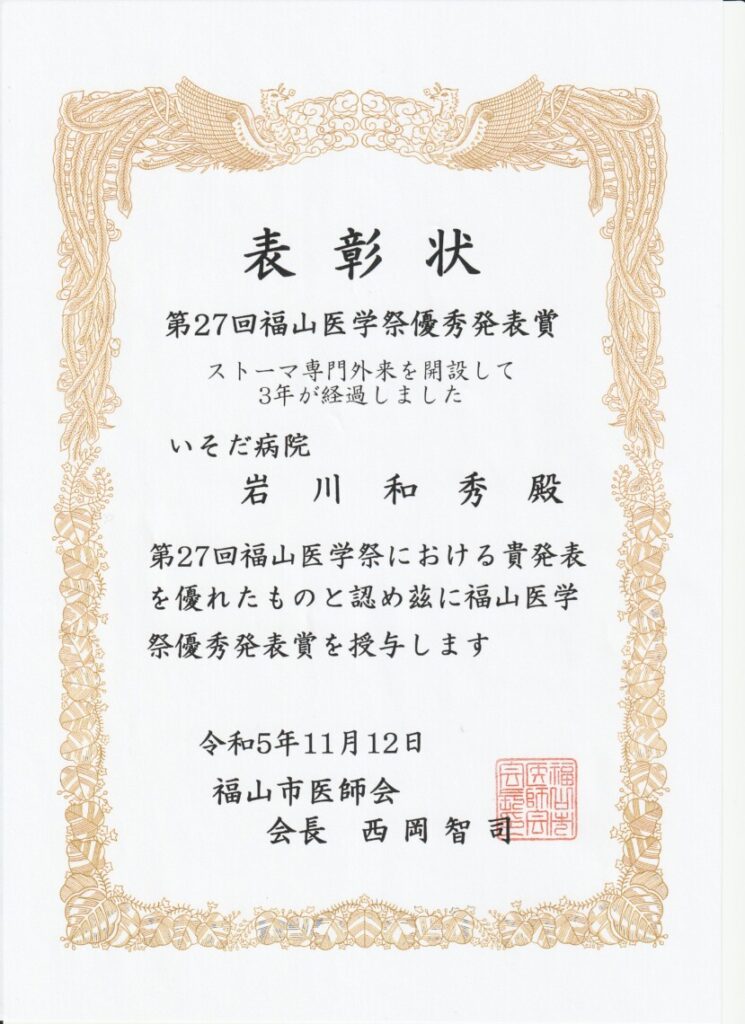 表彰状
第27回福山医学祭優秀発表賞
ストーマ専門外来を開設して
3年が経過しました
いそだ病院
岩川和秀殿
第27回福山医学祭における貴発表
を優れたものと認め茲に福山医学
祭優秀発表賞を授与します
令和5年11月12日
福山市医師会
会長 西岡智司